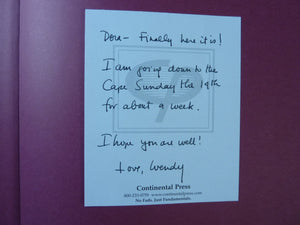 Dora- Finally here it is!
I am going down to the
Cape Sunday the 19th
for about a week.
I hope you are well!
Love, Wendy
Continental Press
800-233-0759 www.continentalpress.com
No Fads. Just Fundamentals.